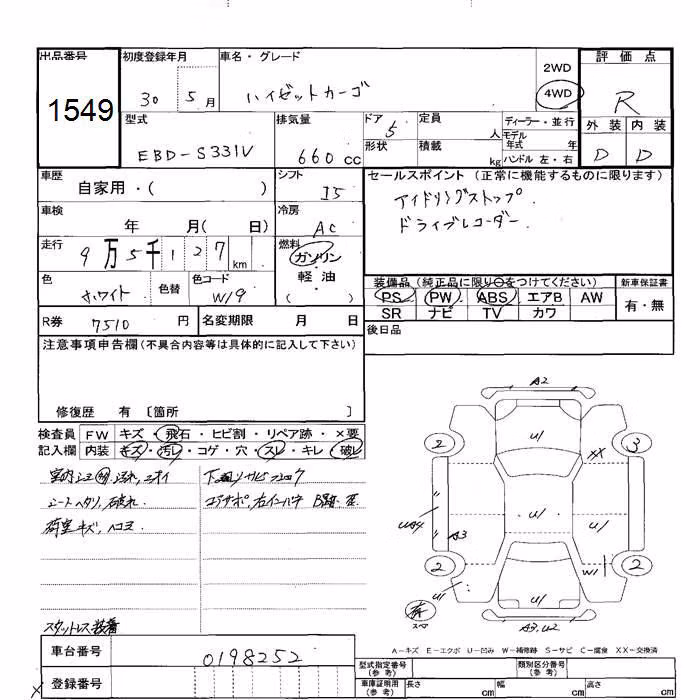 出品番号 初度登録年月 車名・グレード 2WD 評価点
1549 30 5月 ハイゼットカーゴ 4WD R
型式 排気量 ドア 定員 ディーラー・並行 外装 内装
EBD-S331V 660cc 5 人 モデル年式 年 D D
形状 積載 kg ハンドル 左・右
車歴 シフト セールスポイント (正常に機能するものに限ります)
自家用・( ) I5 アイドリングストップ
車検 冷房 ドライブレコーダー
年 月( 日) AC
走行 燃料
9万5千127km ガソリン・軽油( )
色 色替 色コード 装備品(純正品に限り○をつけてください) 新車保証書
ホワイト W19 PS PW ABS エアB AW 有・無
SR ナビ TV カワ
R券 7510円 名変期限 月 日 後日品
注意事項申告欄(不具合内容等は具体的に記入して下さい)
修復歴 有 〔箇所 〕
A2
検査員 FW キズ・飛石・ヒビ割・リペア跡・×要
記入欄 内装 キズ・汚レ・コゲ・穴・スレ・キレ・破レ
2 U/ 3
XX
シートヘタリ、破れ
荷室キズ、ヘコミ
UA4 U/ U/
A3
2 W1 2
U1 U/
スタッドレス装着
A3,U2
A-キズ E-エクボ U-凹み W-補修跡 S-サビ C-腐食 XX-交換済
車台番号 0198252
型式指定番号(参考) 類別区分番号(参考)
登録番号 車庫証明用(参考) 長さ cm 幅 cm 高さ cm